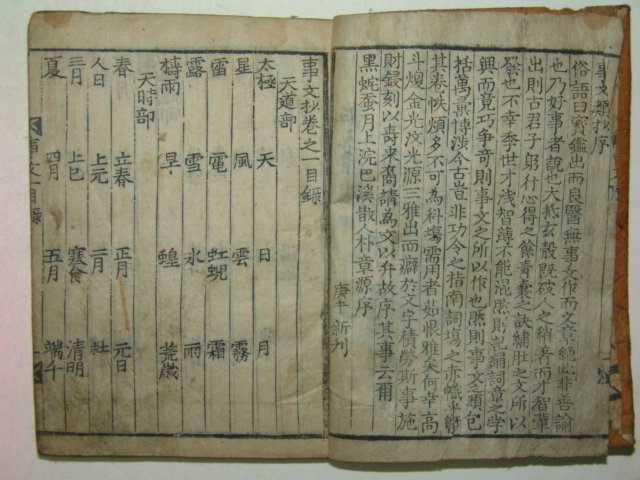 事文類抄序
俗語曰寶鑑出而良醫無事文作而文章絶此非善諭
也乃好事者說也大抵玄殼旣破人之稍著而才智輩
出則古君子躬什心得之餘靑囊之訣繡肚之文所以
發也不幸季世才淺智薄不能混然則記誦詞章之學
興而竟巧爭奇則事文之所以作也然則事文之類包
括萬景博淡今古豈非功令之指南詞場之赤幟乎
其卷帙煩多不可為科場需用者茹恨雅矣何幸高
斗煌金光汶光源三雅出而癖於文字積勞斯事施
財鋟刻以壽来裔請為文以弁故序其事云爾
黑蛇蚕月上浣巴溪散人朴章源序
庚午新刋
事文抄卷之一目錄
天道部
太極 天 日 月
星 風 雲 霧
雷 電 虹蜺 霜
露 雪 氷 雨
禱雨 旱 蝗 荒歲
天時部
春 立春 正月 元日
人日 上元 二月 社
三月 上巳 寒食 清明
夏 四月 五月 端午
事文一目錄